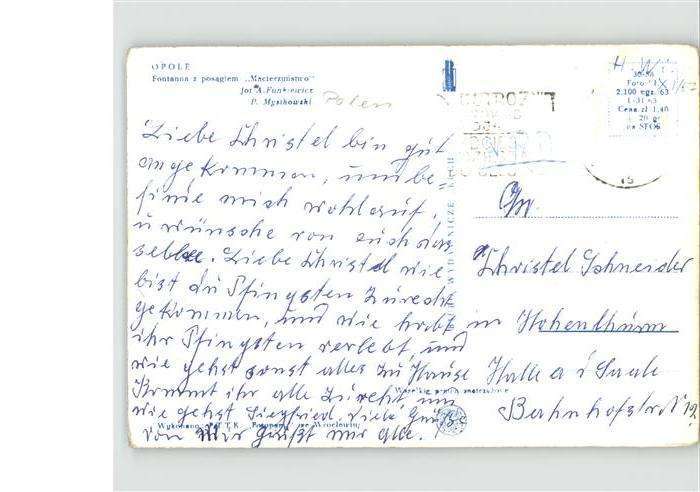 OPOLE
Fontanna z posągiem „Macierzyństwo"
fot. A. Funkiewicz
P. Mystkowski
Polen
Liebe Christel bin gut
angekommen, und be-
finde mich wohlauf,
u wünsche von euch das
selbe. Liebe Christel wie
bist du Pfingsten zurecht
gekommen, und wie habt
ihr Pfingsten verlebt, und
wie gehst sonst alles zu Hause
Kommt ihr alle zurecht, und
wie gehst Siegfried. Viele Grüße
von Mir Grüßt mir alle.
Wszelkie prawa zastrzeżone
30-56
2.100 egz. 63
Cena zł 1,40
20 gr
na SFOS
15
An
Christel Schneider
in Hohenthurm
Halle a d Saale
Bahnhofstr 19